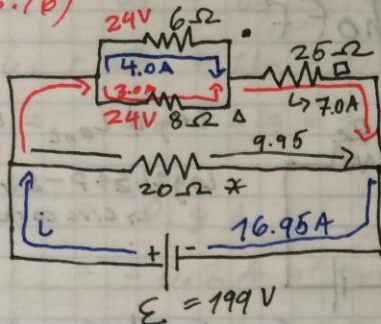 24V 6Ω
4.0A 25Ω
3.0A ↳ 7.0A
24V 8Ω Δ
9.95
20Ω *
i 16.95A
+ -
ε = 199 V